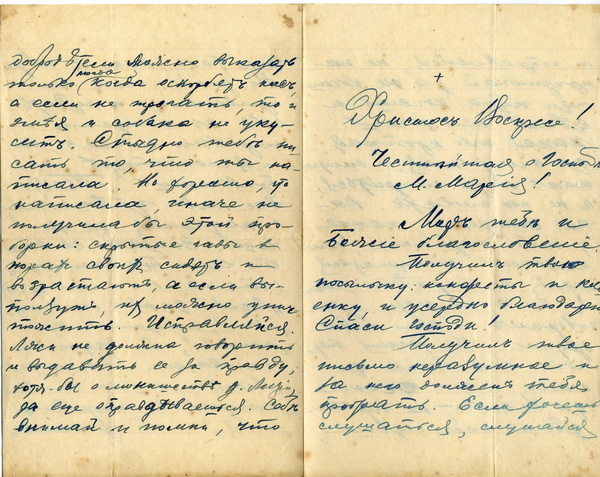 добродѣтели можно выказать
только тогда когда оскорбятъ насъ,
а если не трогать, то и
змѣя и собака не уку-
ситъ. Стыдно тебѣ пи-
сать то, что ты на-
писала. Но хорошо, что
написала, иначе не
получила бы этой про-
борки: скрытые гады въ
норахъ своихъ сидятъ и
возрастаютъ, а если вы-
ползутъ, ихъ можно унич-
тожить. Исправляйся.
Лжи не должна говорить
и выдавать ее за правду,
хотя бы о монашествѣ
да еще оправдываешься. Себѣ
внимай и помни, что
+
Христосъ Воскресе!
Честнѣйшая о Господѣ
М. Марѳія!
Миръ тебѣ и
Божіе благословеніе.
Получилъ твою
посылочку: конфекты и
и усердно благодарю
Спаси Господи!
Получилъ твое
письмо неразумное и
за него долженъ тебя
пробрать. Если хочешь
слушаться, слушайся